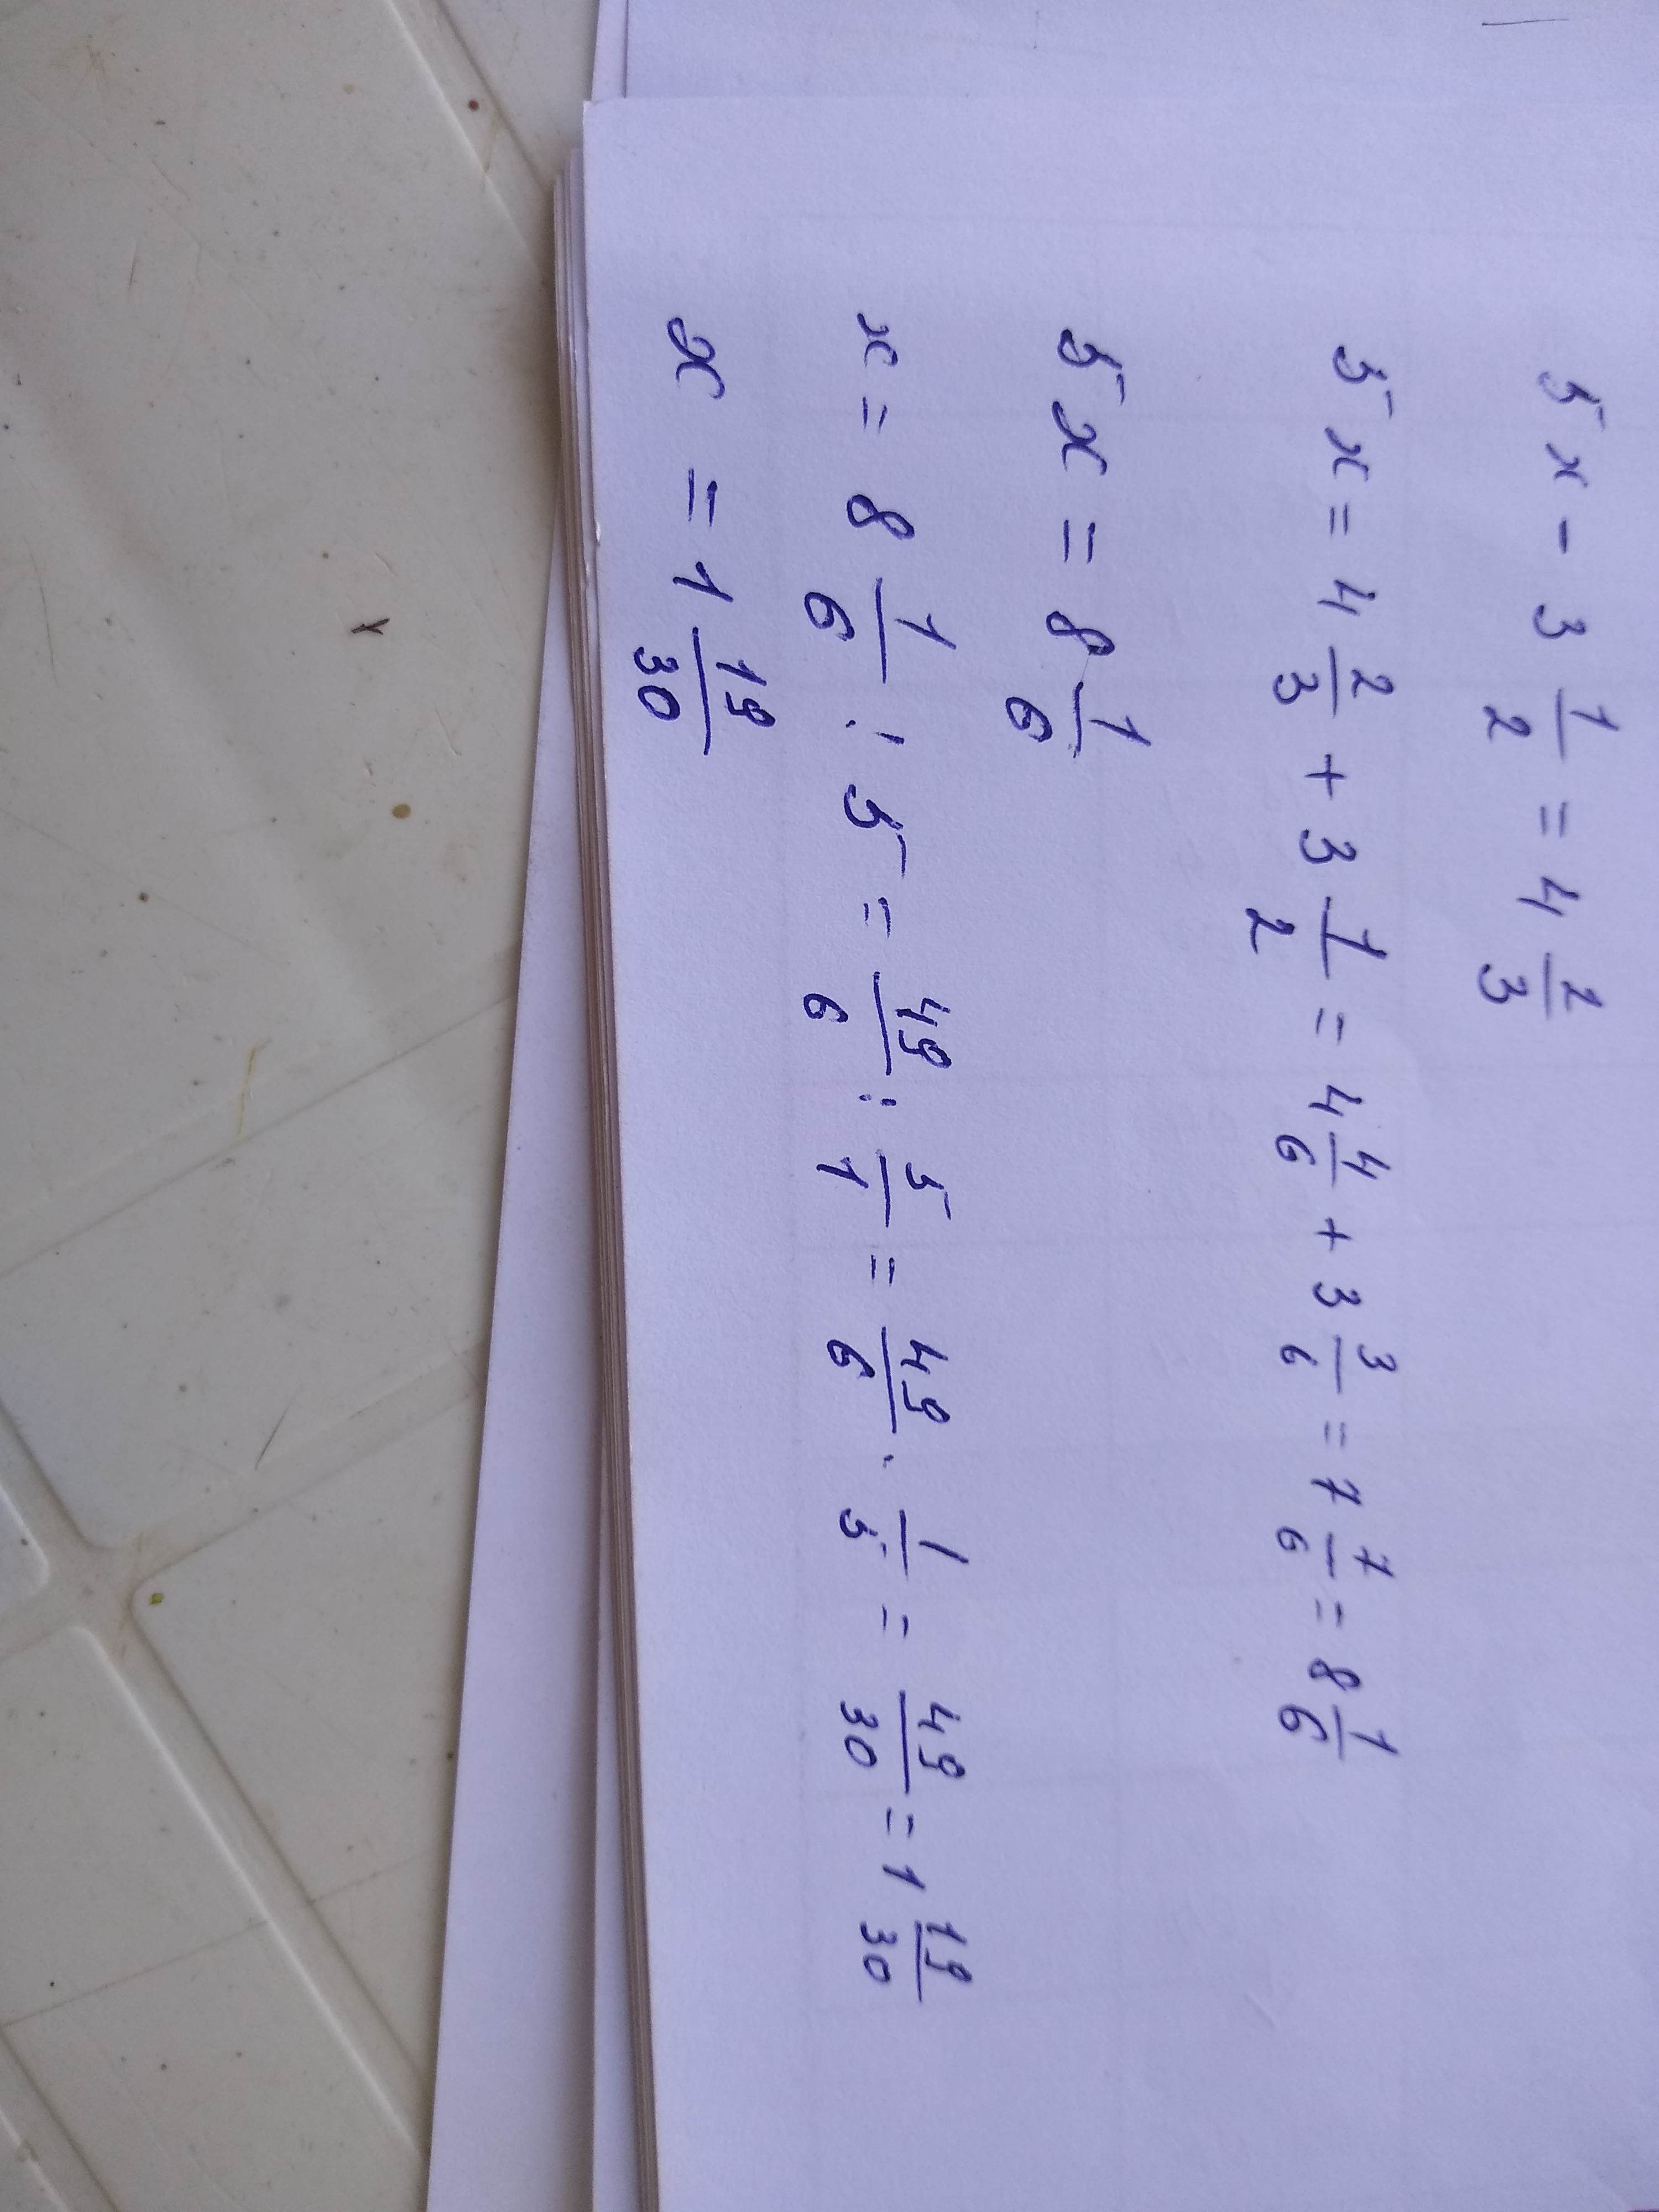 5x - 3 1/2 = 4 2/3
5x = 4 2/3 + 3 1/2 = 4 4/6 + 3 3/6 = 7 7/6 = 8 1/6
5x = 8 1/6
x = 8 1/6 : 5 = 49/6 : 5/1 = 49/6 · 1/5 = 49/30 = 1 19/30
x = 1 19/30